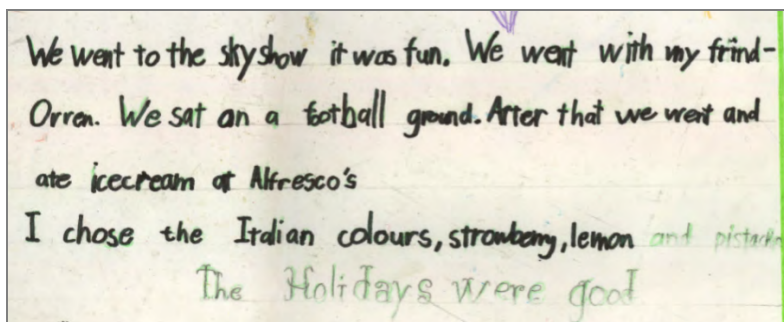 We went to the sky show it was fun. We went with my frind-
Orren. We sat on a football ground. After that we went and
ate icecream at Alfresco's
I chose the Italian colours, strawberry, lemon and pistachio
The Holidays were good